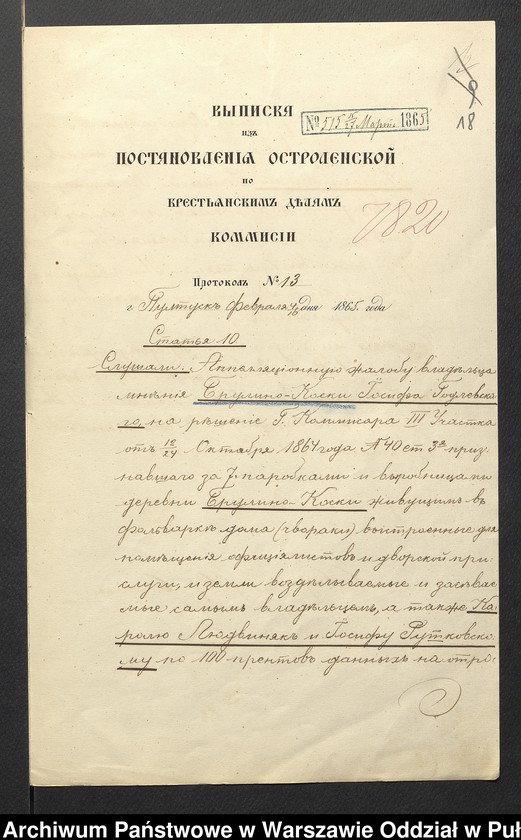 18
ВЫПИСКА
№ 515 Март 1865
ИЗЪ
ПОСТАНОВЛЕНІЯ ОСТРОЛЕНСКОЙ
ПО
КРЕСТЬЯНСКИМЪ ДѢЛАМЪ
7820
КОММИСІИ
Протоколъ № 13
г. Пултускъ Февраля 4/16 дня 1865. года
Статья 10.
Слушали: Аппеляціонную жалобу владѣльца
имѣнія Ерулино-Коски Іосифа Годлевска
го, на рѣшеніе Г. Коммисара III Участка
отъ 12/24 Октября 1864 года № 40 ст 3я приз-
навшаго за 7 паробками и выробницами
деревни Ерулино-Коски живущимъ въ
фольваркѣ дома (чвораки) выстроенные для
помѣщенія офиціялистовъ и дворской при
слуги, и земли воздѣлываемые и засѣвае
мые самымъ владѣльцемъ, а также Ка
ролю Людвинякъ и Іосифу Рутковско
му по 100 прентовъ данныхъ на отра
Archiwum Państwowe w Warszawie Oddział w Puł